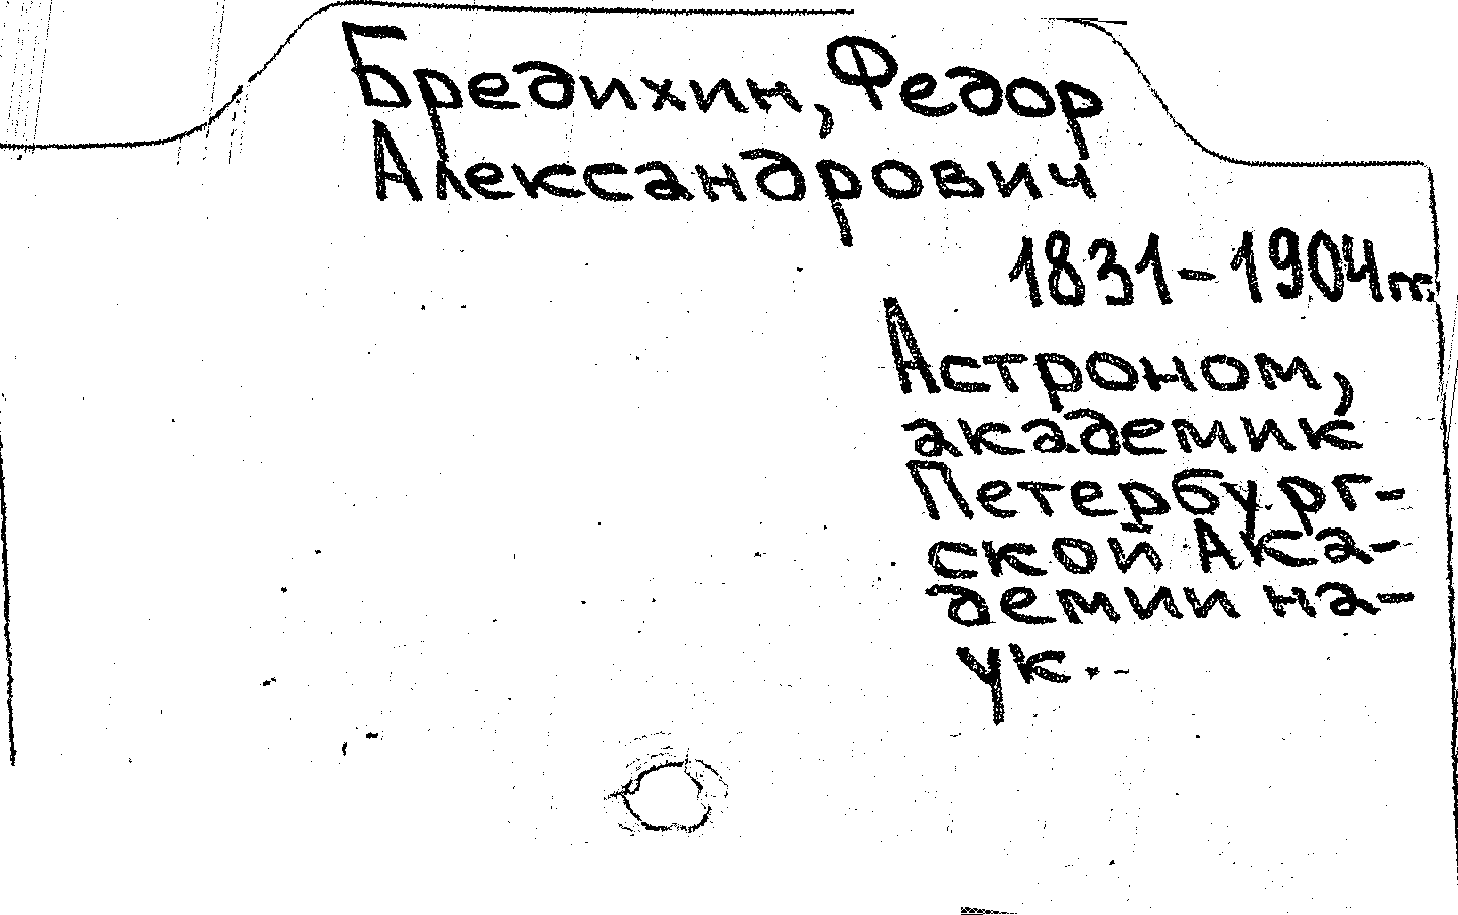 Бредихин, Федор
Александрович
1831-1904гг.
Астроном,
академик
Петербург-
ской Ака-
демии на-
ук.